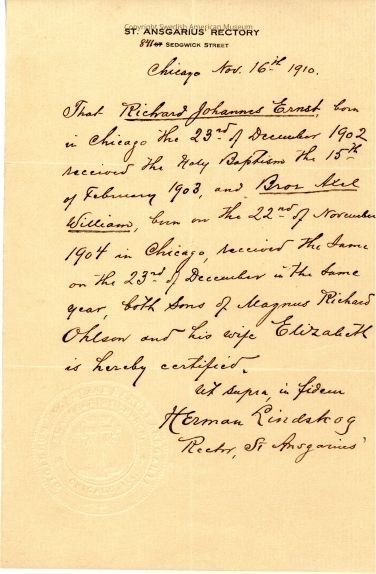 Copyright Swedish American Museum
ST. ANSGARIUS' RECTORY
SEDGWICK STREET
Chicago Nov. 16th 1910.
That Richard Johannes Ernst, born
in Chicago the 23rd of December 1902
received the Holy Baptism the 15th
of February 1903, and Bror Axel
William, born on the 22nd of November
1904 in Chicago, received the same
on the 23rd of December in the same
year, both sons of Magnus Richard
Ohlson and his wife Elizabeth
is hereby certified.
Ut supra, in fidem
Herman Lindskog
Rector, St Ansgarius'